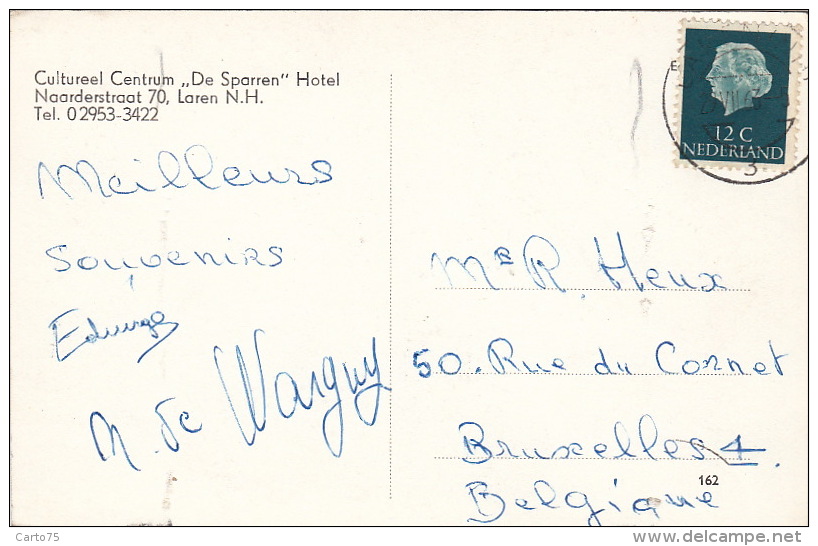 Cultureel Centrum „De Sparren" Hotel
Naarderstraat 70, Laren N.H.
Tel. 0 2953-3422
12 C
NEDERLAND
3
Meilleurs
Souvenirs
Edwige
N. de Warguy
Mr R. Heux
50. Rue du Cornet
Bruxelles 4.
162
Belgique
Carto75
delcampe.net